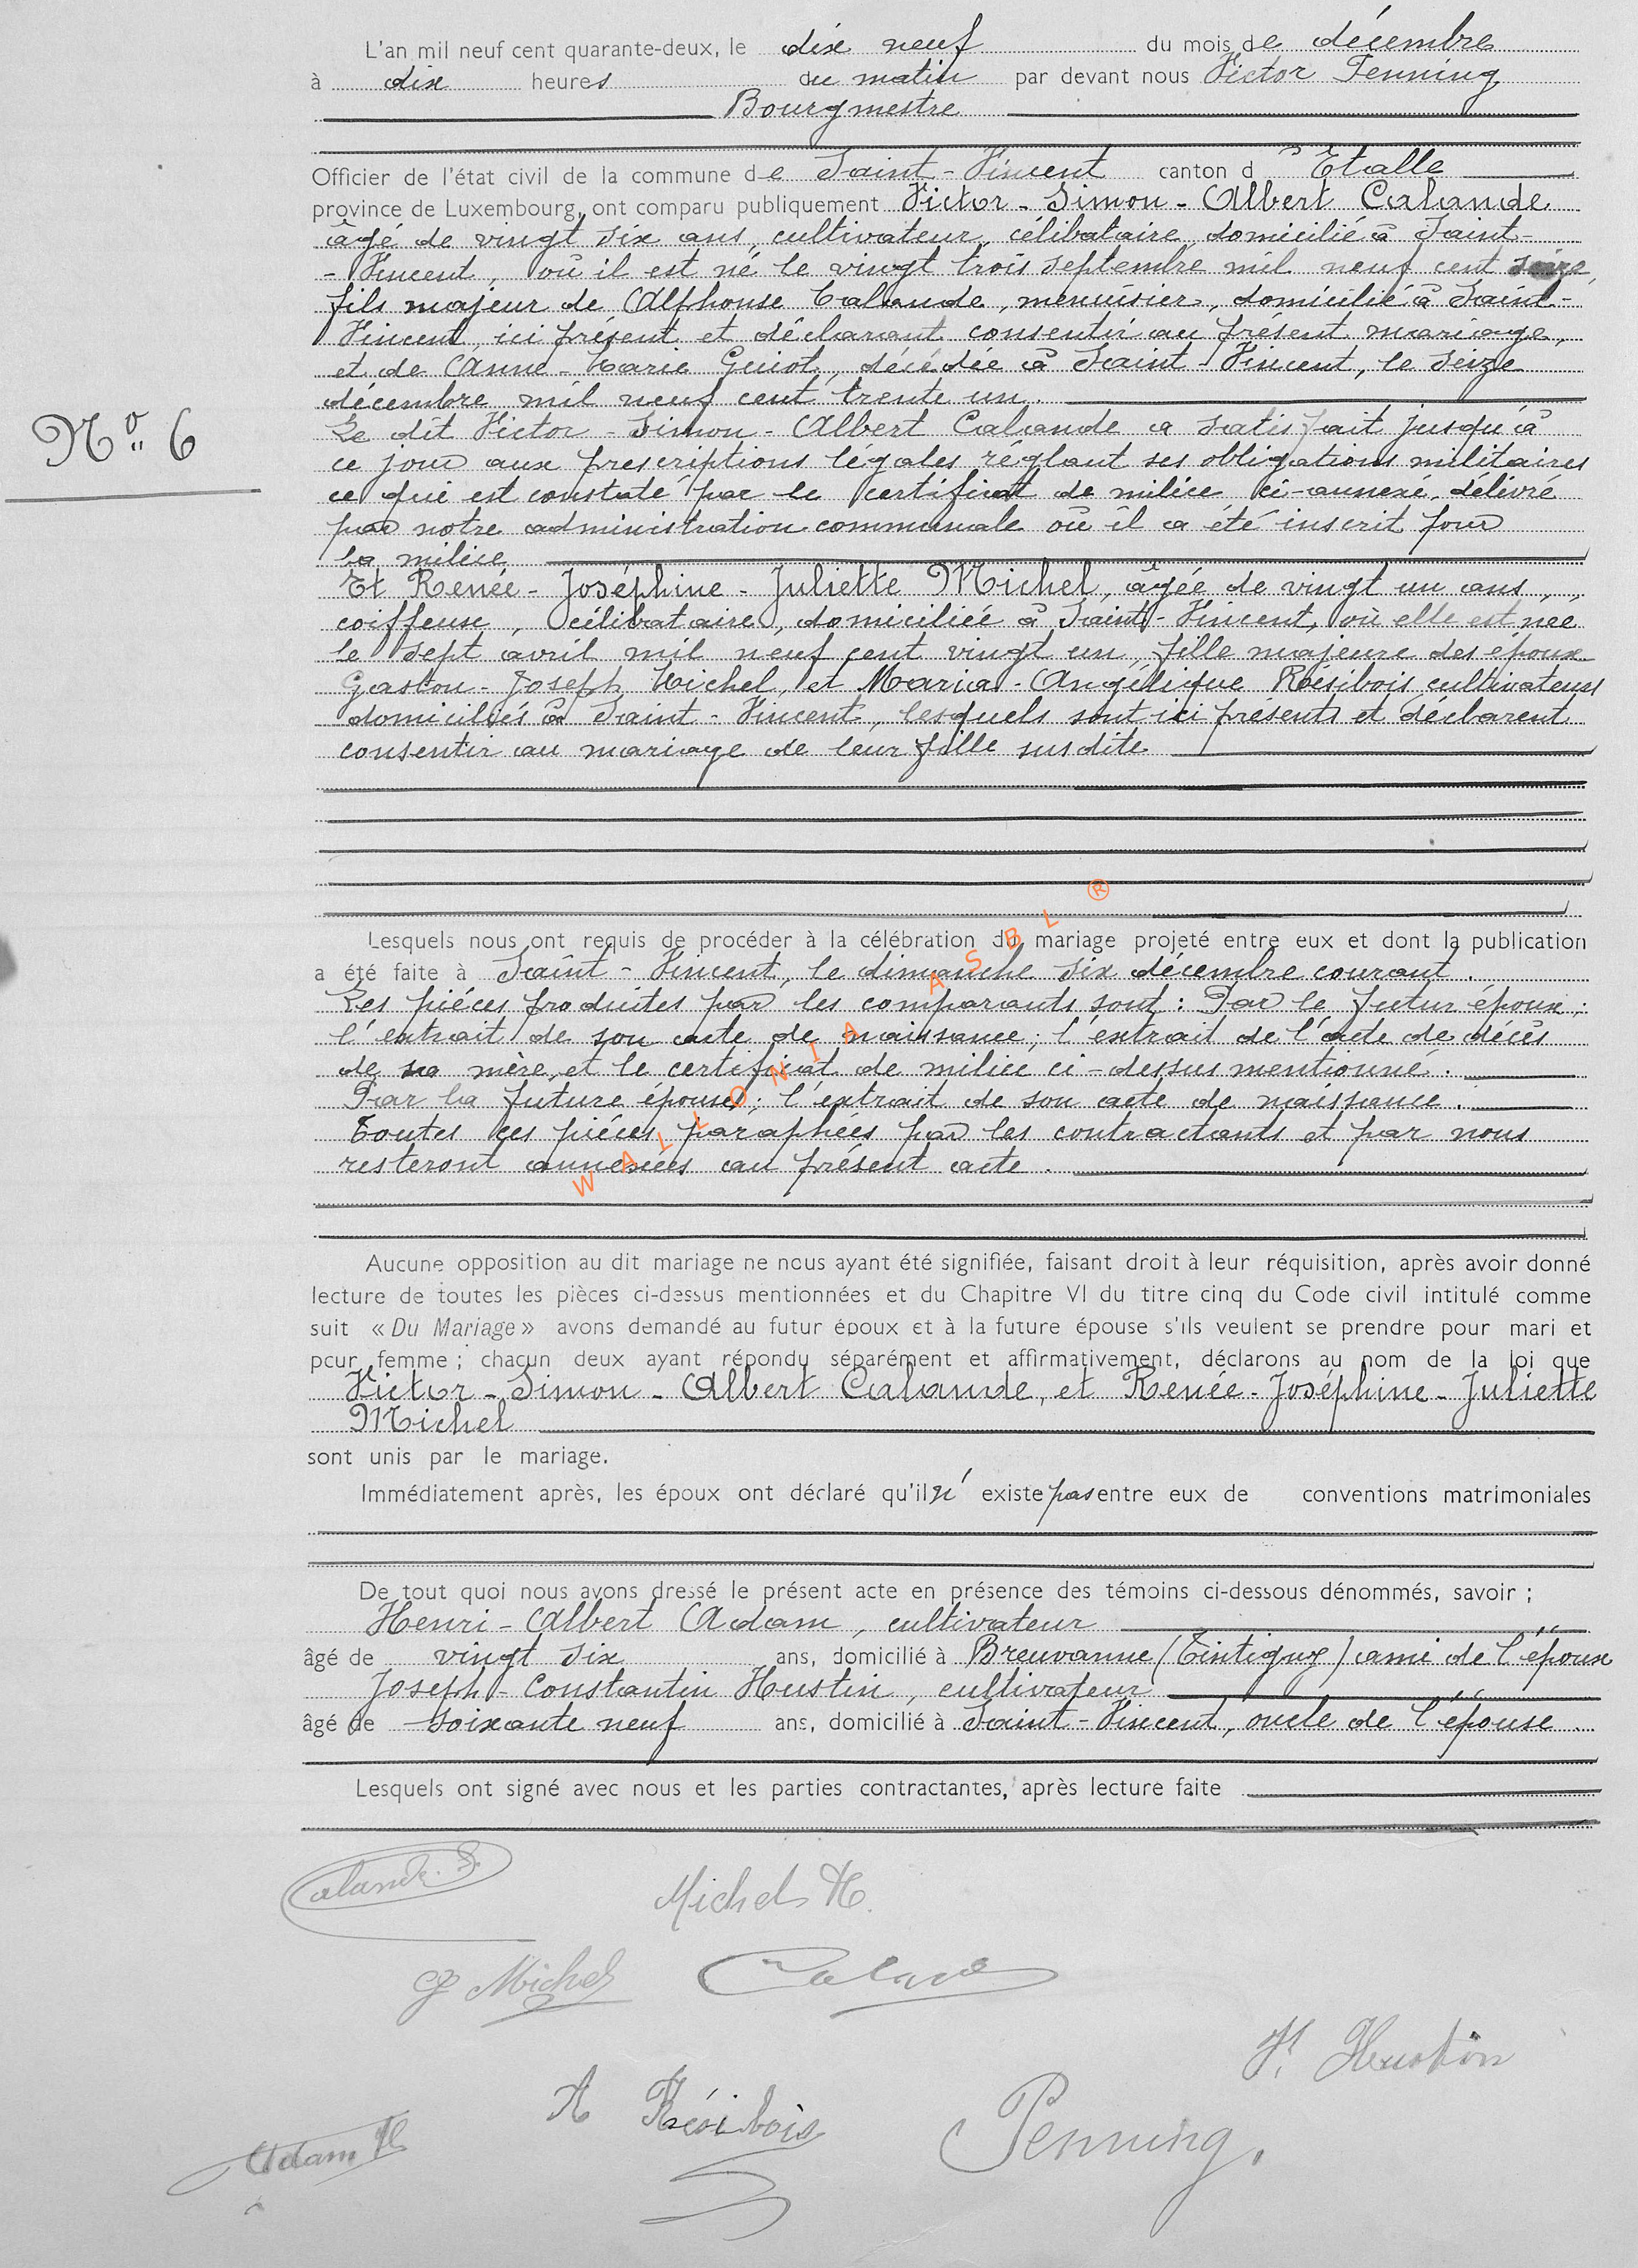 L'an mil neuf cent quarante-deux, le dix neuf du mois de décembre
à dix heures du matin par devant nous Victor Penning
Bourgmestre
Officier de l'état civil de la commune de Saint-Vincent canton d'Etalle
province de Luxembourg, ont comparu publiquement Victor-Simon-Albert Calande
âgé de vingt six ans, cultivateur, célibataire, domicilié à Saint-
-Vincent, où il est né le vingt trois septembre mil neuf cent seize,
fils majeur de Alphonse Calande, menuisier, domicilié à Saint-
Vincent, ici présent et déclarant consentir au présent mariage,
et de Anne-Marie Guiot, décédée à Saint-Vincent, le seize
décembre mil neuf cent trente un.
Nº 6
Le dit Victor-Simon-Albert Calande a satisfait jusqu'à
ce jour aux prescriptions légales réglant ses obligations militaires
ce qui est constaté par le certificat de milice ci-annexé, délivré
par notre administration communale où il a été inscrit pour
la milice
Et Renée-Joséphine-Juliette Michel, âgée de vingt un ans,
coiffeuse, célibataire, domiciliée à Saint-Vincent, où elle est née
le sept avril mil neuf cent vingt un, fille majeure des époux
Gaston-Joseph Michel, et Maria-Angélique Résibois, cultivateurs
domiciliés à Saint-Vincent, lesquels sont ici présents et déclarent
consentir au mariage de leur fille susdite
Lesquels nous ont requis de procéder à la célébration du mariage projeté entre eux et dont la publication
a été faite à Saint-Vincent, le dimanche six décembre courant.
Les pièces produites par les comparants sont : Par le futur époux :
l'extrait de son acte de naissance ; l'extrait de l'acte de décès
de sa mère, et le certificat de milice ci-dessus mentionné.
Par la future épouse ; l'extrait de son acte de naissance.
Toutes ces pièces, paraphées par les contractants et par nous
resteront annexées au présent acte.
WALLONIA ASBL ®
Aucune opposition au dit mariage ne nous ayant été signifiée, faisant droit à leur réquisition, après avoir donné
lecture de toutes les pièces ci-dessus mentionnées et du Chapitre VI du titre cinq du Code civil intitulé comme
suit « Du Mariage » avons demandé au futur époux et à la future épouse s'ils veulent se prendre pour mari et
pour femme ; chacun deux ayant répondu séparément et affirmativement, déclarons au nom de la loi que
Victor-Simon-Albert Calande, et Renée-Joséphine-Juliette
Michel
sont unis par le mariage.
Immédiatement après, les époux ont déclaré qu'il n'existe pas entre eux de conventions matrimoniales
De tout quoi nous avons dressé le présent acte en présence des témoins ci-dessous dénommés, savoir ;
Henri-Albert Adam, cultivateur
âgé de vingt six ans, domicilié à Breuvanne (Tintigny) ami de l'époux
Joseph-Constantin Hustin, cultivateur
âgé de soixante neuf ans, domicilié à Saint-Vincent, oncle de l'épouse.
Lesquels ont signé avec nous et les parties contractantes, après lecture faite
Calande. S.
Michel
G Michel
Calande
Hustin
A Résibois
Penning.
Adam H